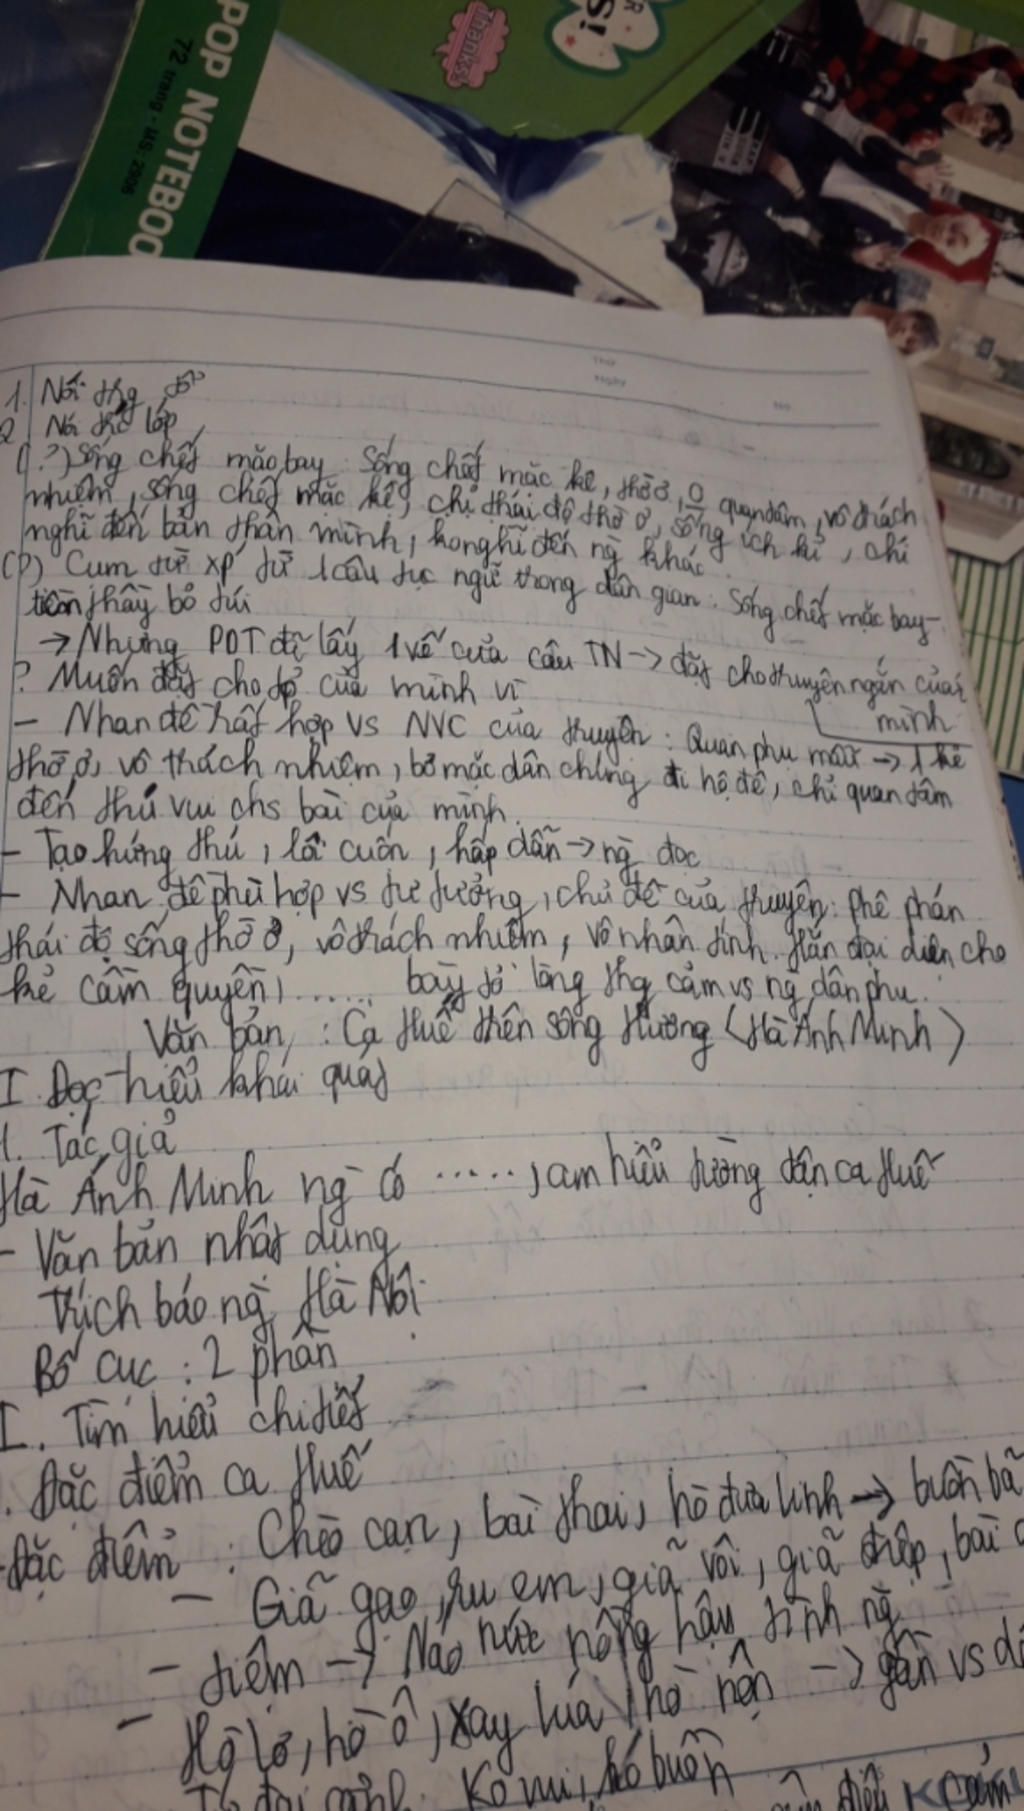 POP NOTEBOO
72 trang - MS: 2908
thanks!
Thứ
Ngày
No
1. Nói
2 Nói lớp
(1.?) Sống chết mặc bay: Sống chết mặc kệ, thờ ơ, 0 quan tâm, vô trách
nhiệm, sống chết mặc kệ, chỉ thái độ thờ ơ, sống ích kỉ, chỉ
nghĩ đến bản thân mình, ko nghĩ đến ng khác.
(?) Cụm từ XP từ 1 câu tục ngữ trong dân gian: Sống chết mặc bay-
tiền thầy bỏ túi
→ Nhưng PDT đã lấy 1 vế của câu TN → đặt cho truyện ngắn của
mình
? Muốn đặt cho của mình vì
- Nhan đề rất hợp vs NVC của truyện: Quan phụ mẫu → 1 kẻ
thờ ơ, vô trách nhiệm, bỏ mặc dân chúng đi hộ đê, chỉ quan tâm
đến thú vui chs bài của mình.
- Tạo hứng thú, lôi cuốn, hấp dẫn → ng đọc
- Nhan đề phù hợp vs tư tưởng, chủ đề của truyện: phê phán
thái độ sống thờ ơ, vô trách nhiệm, vô nhân tính. Hắn đại diện cho
kẻ cầm quyền, ...... bày tỏ lòng thg cảm vs ng dân phu.
Văn bản: Ca Huế trên sông Hương (Hà Ánh Minh)
I Đọc - hiểu khái quát
1. Tác giả
Hà Ánh Minh ng có ......, am hiểu tường tận ca Huế
- Văn bản nhật dụng
Trích báo ng Hà Nội
Bố cục: 2 phần
I. Tìm hiểu chi tiết
. Đặc điểm ca Huế
- Đặc điểm: Chèo cạn, bài thai, hò đưa linh → buồn bã
- Giã gạo, ru em, giã vôi, giã điệp, bài
- tiệm → Náo nức nồng hậu tình ng
- Hò lơ, hò ô, xay lúa, hò nện → gần vs
Ko vui, ko buồn